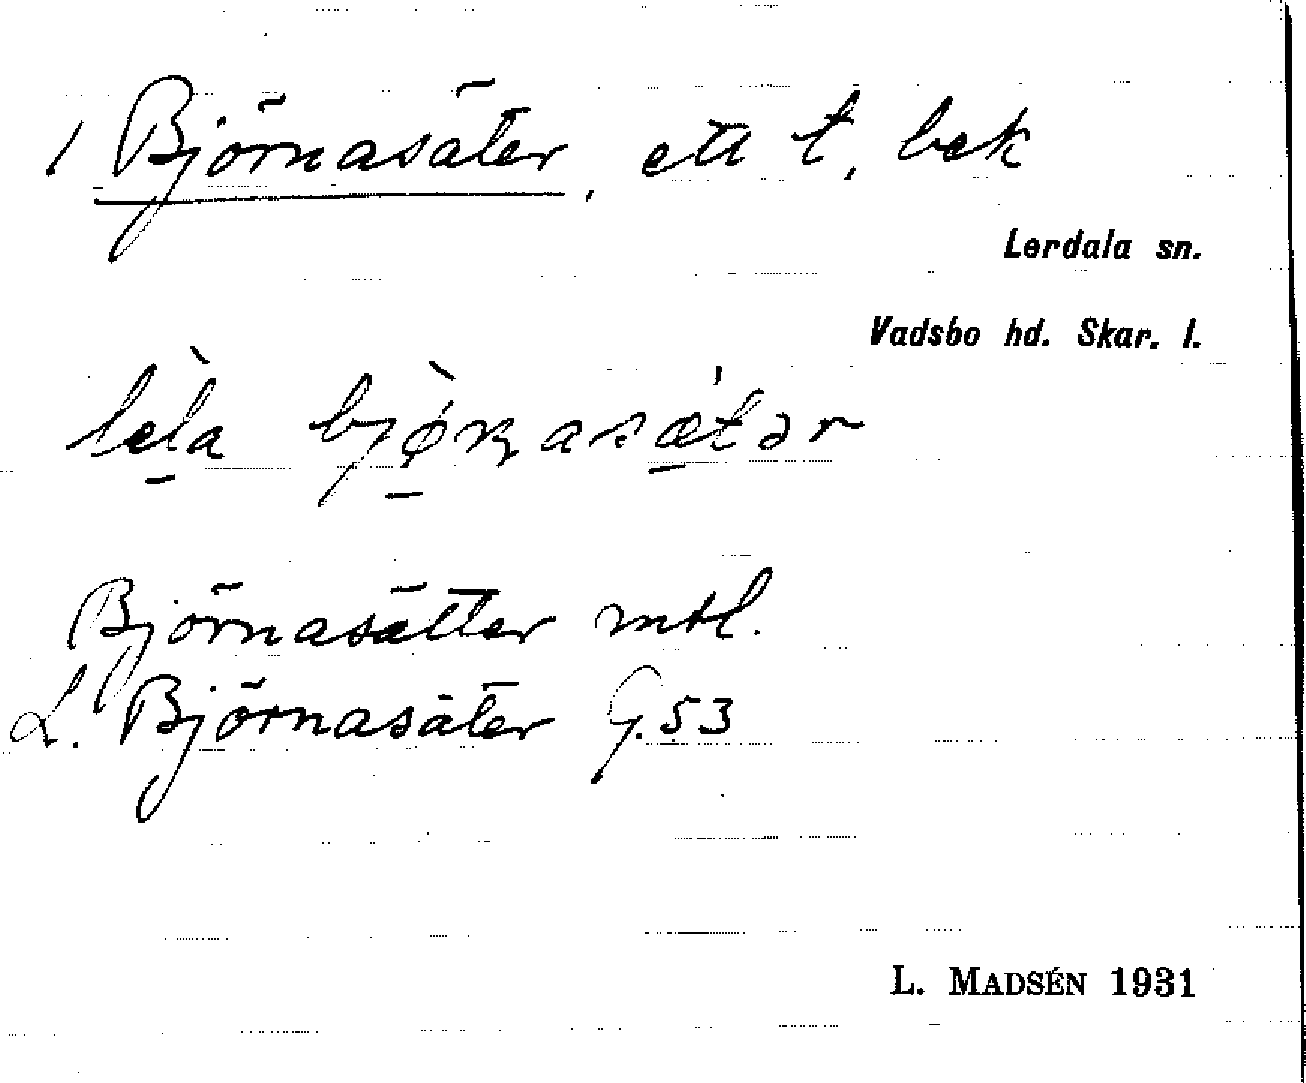 1 Björnasäter, ett t, bek
Lerdala sn.
Vadsbo hd. Skar. l.
lela bjøṛnasætər
Björnasätter mtl.
L. Björnasäter G. 53
L. MADSÉN 1931